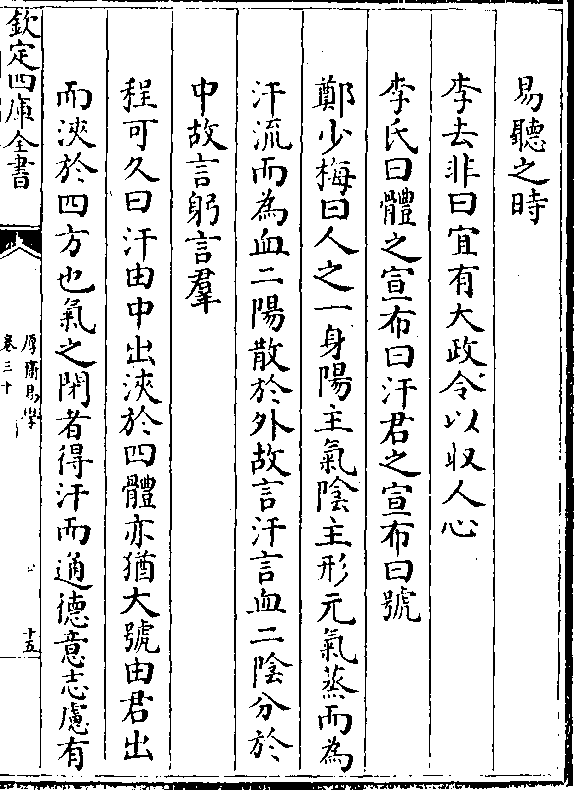 易聽之時
李去非曰宜有大政令以收人心
李氏曰體之宣布曰汗君之宣布曰號
鄭少梅曰人之一身陽主氣陰主形元氣蒸而為
汗流而為血二陽散於外故言汗言血二陰分於
中故言躬言羣
程可久曰汗由中出浹於四體亦猶大號由君出
而浹於四方也氣之閉者得汗而通德意志慮有
欽定四庫全書
厚齋易學
卷三十
十五